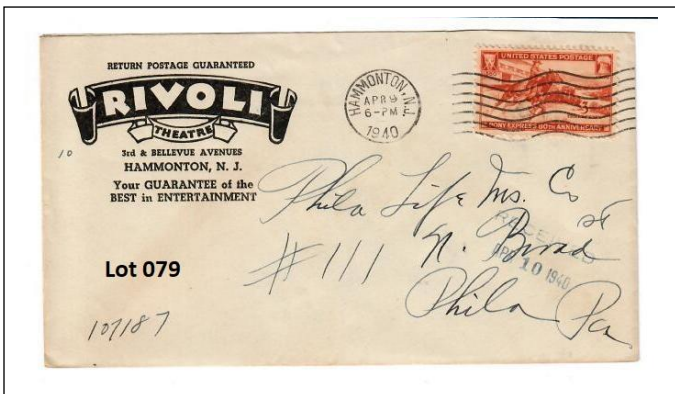 RETURN POSTAGE GUARANTEED
RIVOLI
THEATRE
3rd & BELLEVUE AVENUES
HAMMONTON, N. J.
Your GUARANTEE of the
BEST in ENTERTAINMENT
10
HAMMONTON, N.J.
APR 9
6-PM
1940
UNITED STATES POSTAGE
3¢
PONY EXPRESS 80th ANNIVERSARY
Phila Life Ins. Co
# 111 N. Broad St
Phila Pa
RECEIVED
APR 10 1940
Lot 079
107187